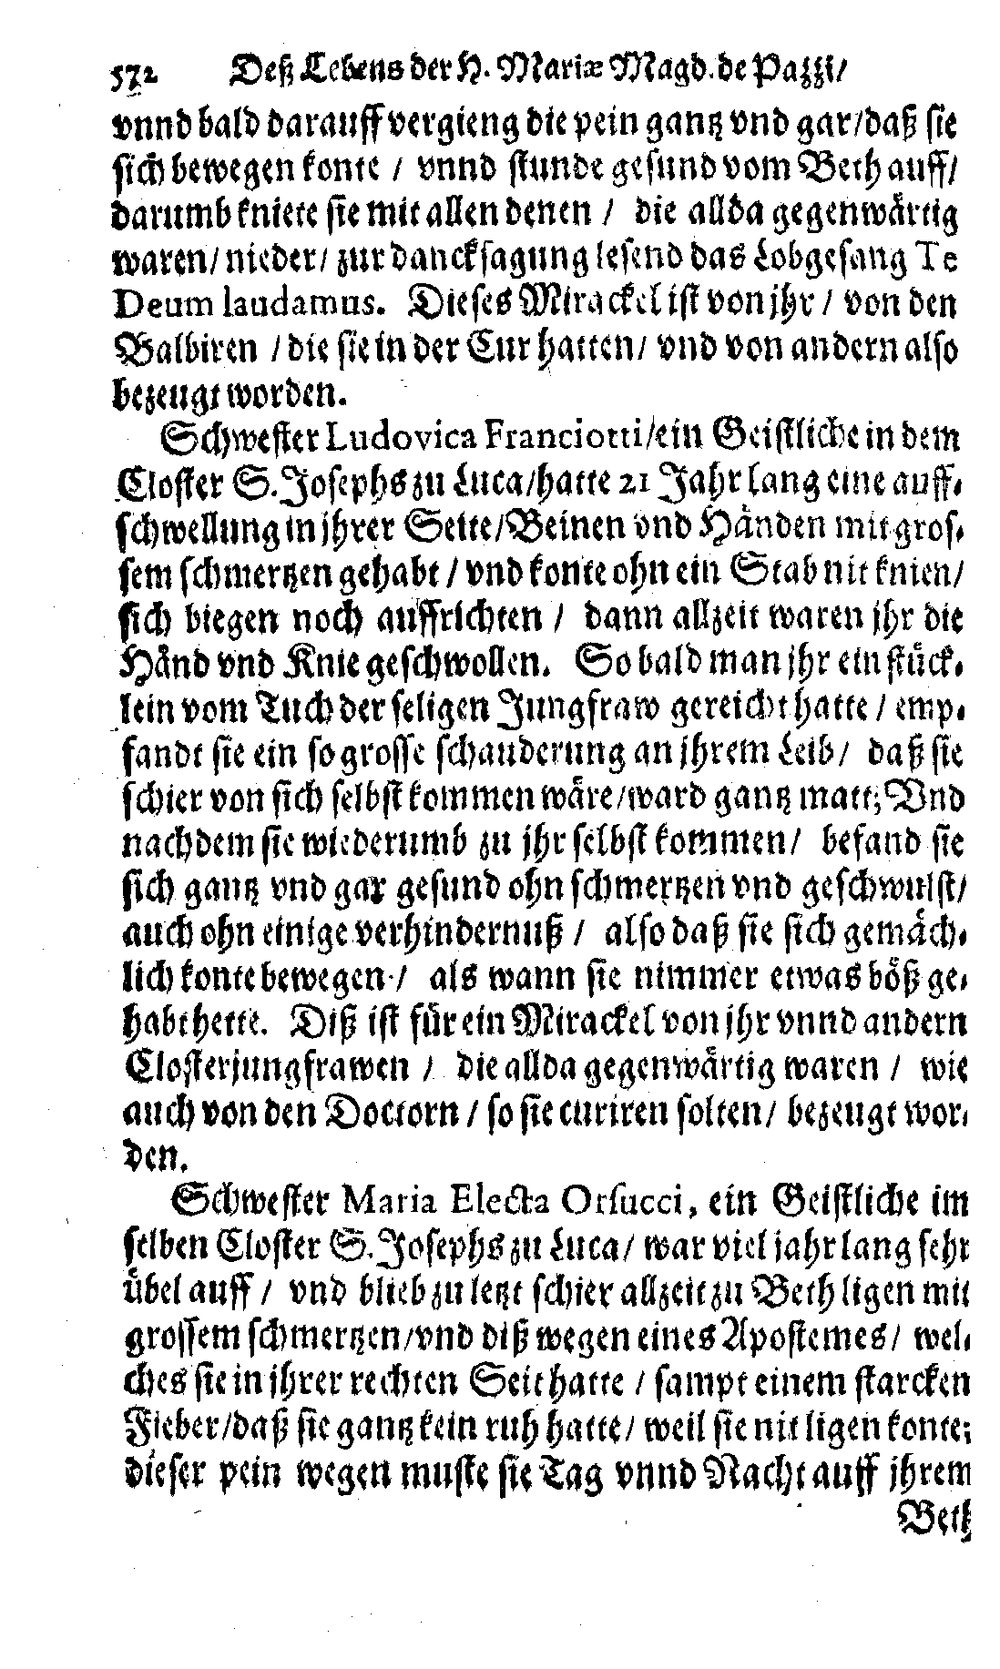 572 Deß Lebens der H. Mariæ Magd. de Pazzi/
vnnd bald darauff vergieng die pein gantz vnd gar/daß sie
sich bewegen konte / vnnd stunde gesund vom Beth auff/
darumb kniete sie mit allen denen / die allda gegenwärtig
waren/ nieder/ zur dancksagung lesend das Lobgesang Te
Deum laudamus. Dieses Mirackel ist von jhr / von den
Balbiren / die sie in der Cur hatten/ vnd von andern also
bezeugt worden.
Schwester Ludovica Franciotti/ein Geistliche in dem
Closter S. Josephs zu Luca/hatte 21 Jahr lang eine auff-
schwellung in jhrer Seite/Beinen vnd Händen mit gros-
sem schmertzen gehabt / vnd konte ohn ein Stab nit knien/
sich biegen noch auffrichten / dann allzeit waren jhr die
Händ vnd Knie geschwollen. So bald man jhr ein stück-
lein vom Tuch der seligen Jungfraw gereicht hatte / emp-
fandt sie ein so grosse schauderung an jhrem Leib/ daß sie
schier von sich selbst kommen wäre/ward gantz matt; Vnd
nachdem sie wiederumb zu jhr selbst kommen/ befand sie
sich gantz vnd gar gesund ohn schmertzen vnd geschwulst/
auch ohn einige verhindernuß / also daß sie sich gemäch-
lich konte bewegen / als wann sie nimmer etwas böß ge-
habt hette. Diß ist für ein Mirackel von jhr vnnd andern
Closterjungfrawen / die allda gegenwärtig waren / wie
auch von den Doctorn / so sie curiren solten/ bezeugt wor-
den.
Schwester Maria Electa Orsucci, ein Geistliche im
selben Closter S. Josephs zu Luca/ war viel jahr lang sehr
übel auff / vnd blieb zu letzt schier allzeit zu Beth ligen mit
grossem schmertzen/vnd diß wegen eines Apostemes/ wel-
ches sie in jhrer rechten Seit hatte / sampt einem starcken
Fieber/daß sie gantz kein ruh hatte/ weil sie nit ligen konte;
dieser pein wegen muste sie Tag vnnd Nacht auff jhrem
Beth